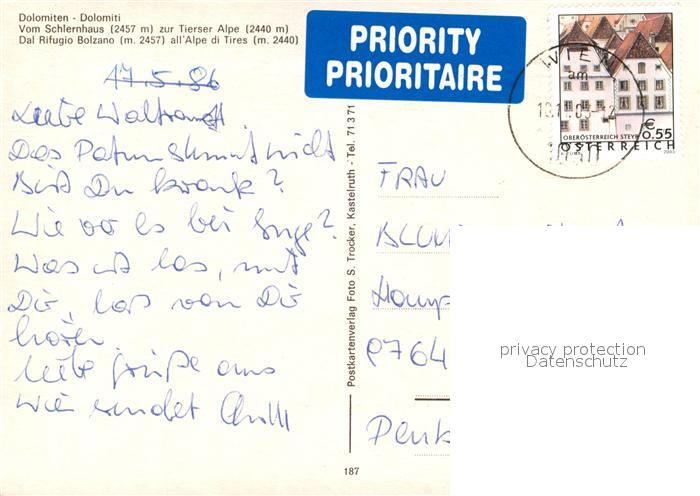 Dolomiten - Dolomiti
Vom Schlernhaus (2457 m) zur Tierser Alpe (2440 m)
Dal Rifugio Bolzano (m. 2457) all'Alpe di Tires (m. 2440)
17.5.86
Liebe Waltraud
Das Datum stimmt nicht
Bist Du krank?
Wie war es bei Inge?
Was ist los, mit
Dir, lass von Dir
hören
liebe Grüße aus
Wien sendet
Postkartenverlag Foto S. Trocker, Kastelruth - Tel. 71371
187
PRIORITY
PRIORITAIRE
WIEN
am
OBERÖSTERREICH STEYR
€ 0.55
ÖSTERREICH
FRAU
privacy protection
Datenschutz